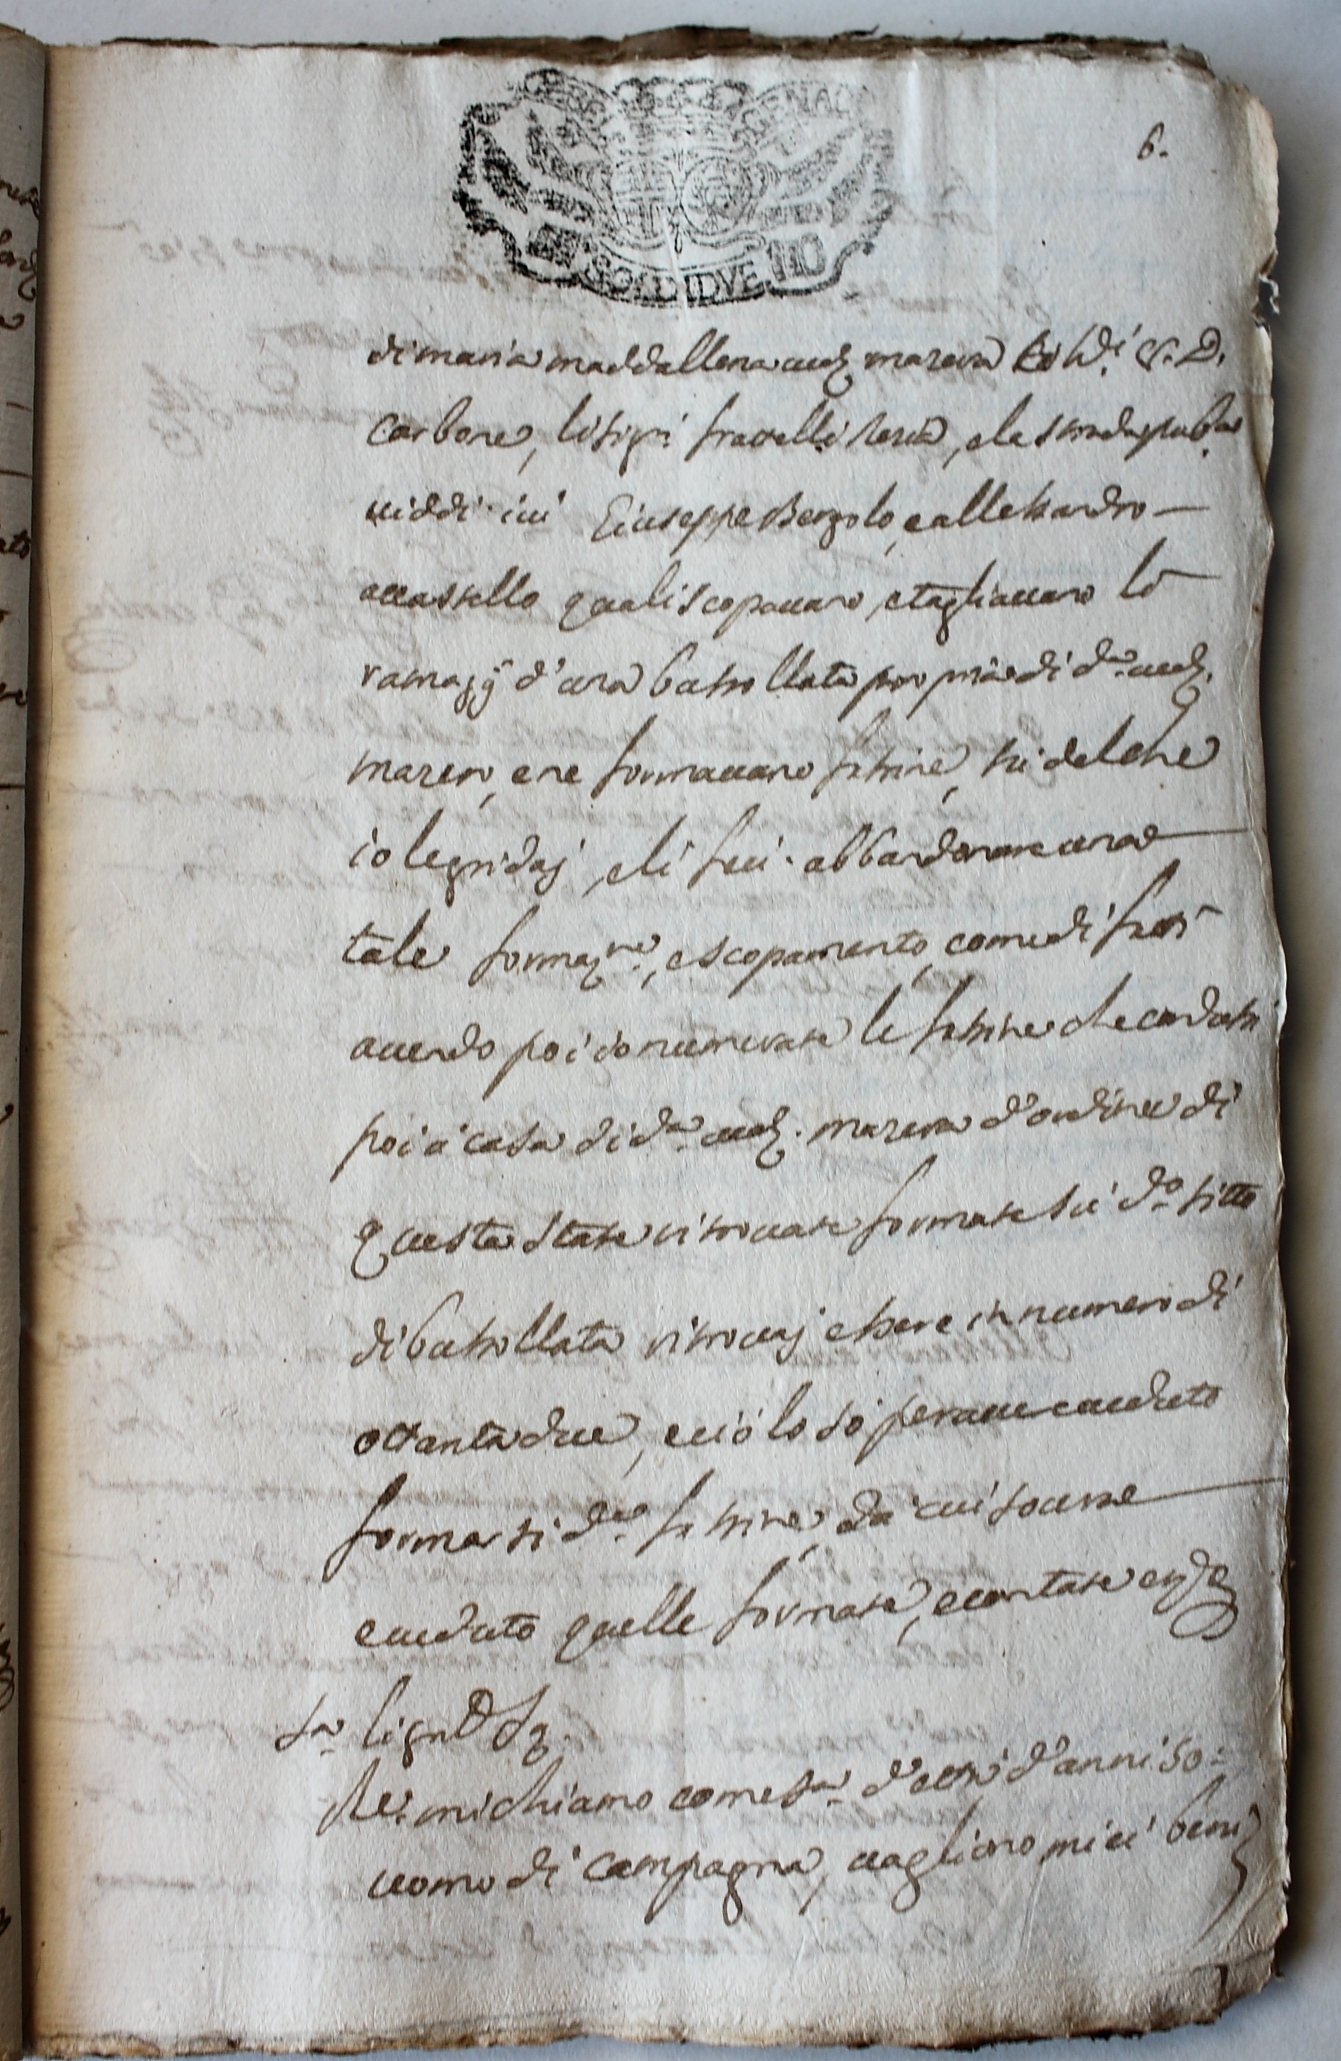 6.
SOLDI DVE
di maria maddallena ved.ª mazera
carbone, li sig.ri fratelli e la strada pub.ca
viddi ivi Giuseppe Berzolo, e allessandro
avassello quali scopavano, e tagliavano lo
ramazÿ d'una battollata propria di d.ª ved.ª
mazera, e ne formavano fassine, su del che
io le gridaj, e li feci abbandonare una
tale formaz.ne, e scopamento, come di fatti
avendo poi io numerate le fassine che condussi
poi à casa di d.ª ved.ª mazera d'ordine di
questa state ritrovate formate sù d.º sitto
di battollata ritrovaj essere in numero di
ottanta due, e ciò lo sò per aver veduto
formarsi d.e fassine, da cui sovra
e veduto quelle formate, e contate
mi chiamo come s.ª d'età d'anni 50:
uomo di Campagna, vagliono miei beni